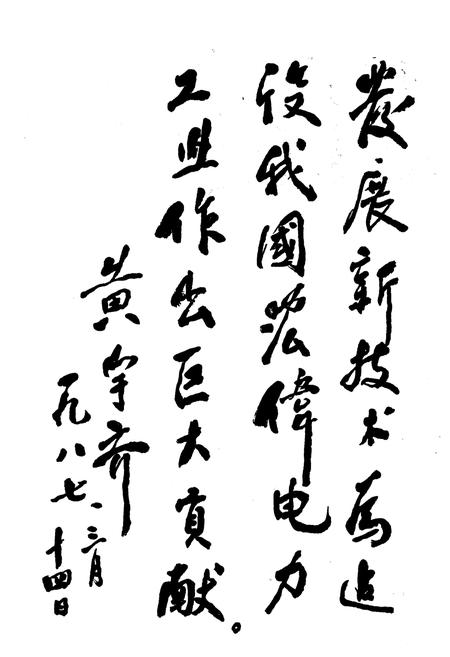 發展新技术為迠
設我國宏偉电力
工业作出巨大貢献。
黄宇齐
一九八七、三月
十四日